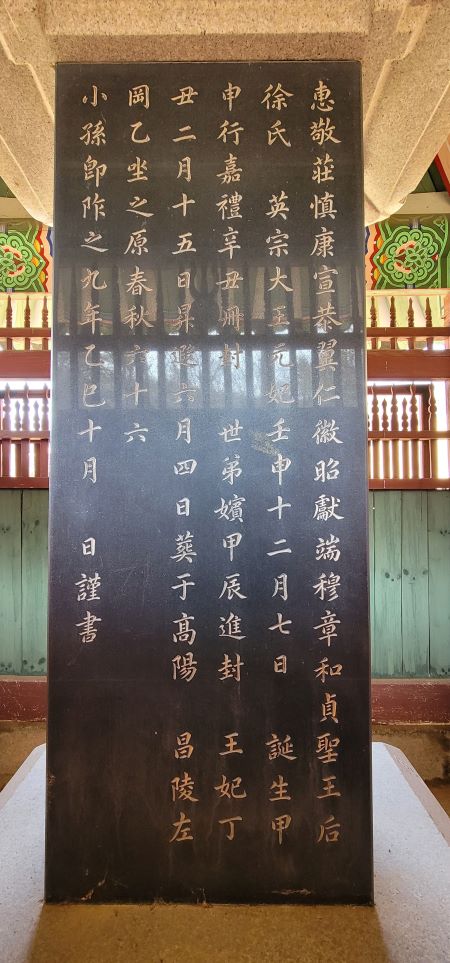 惠敬莊慎康宣恭翼仁徽昭獻端穆章和貞聖王后
徐氏 英宗大王元妃壬申十二月七日 誕生甲
申行嘉禮辛丑冊封 世弟嬪甲辰進封 王妃丁
丑二月十五日昇遐六月四日葬于髙陽 昌陵左
岡乙坐之原春秋六十六
小孫卽阼之九年乙巳十月 日謹書